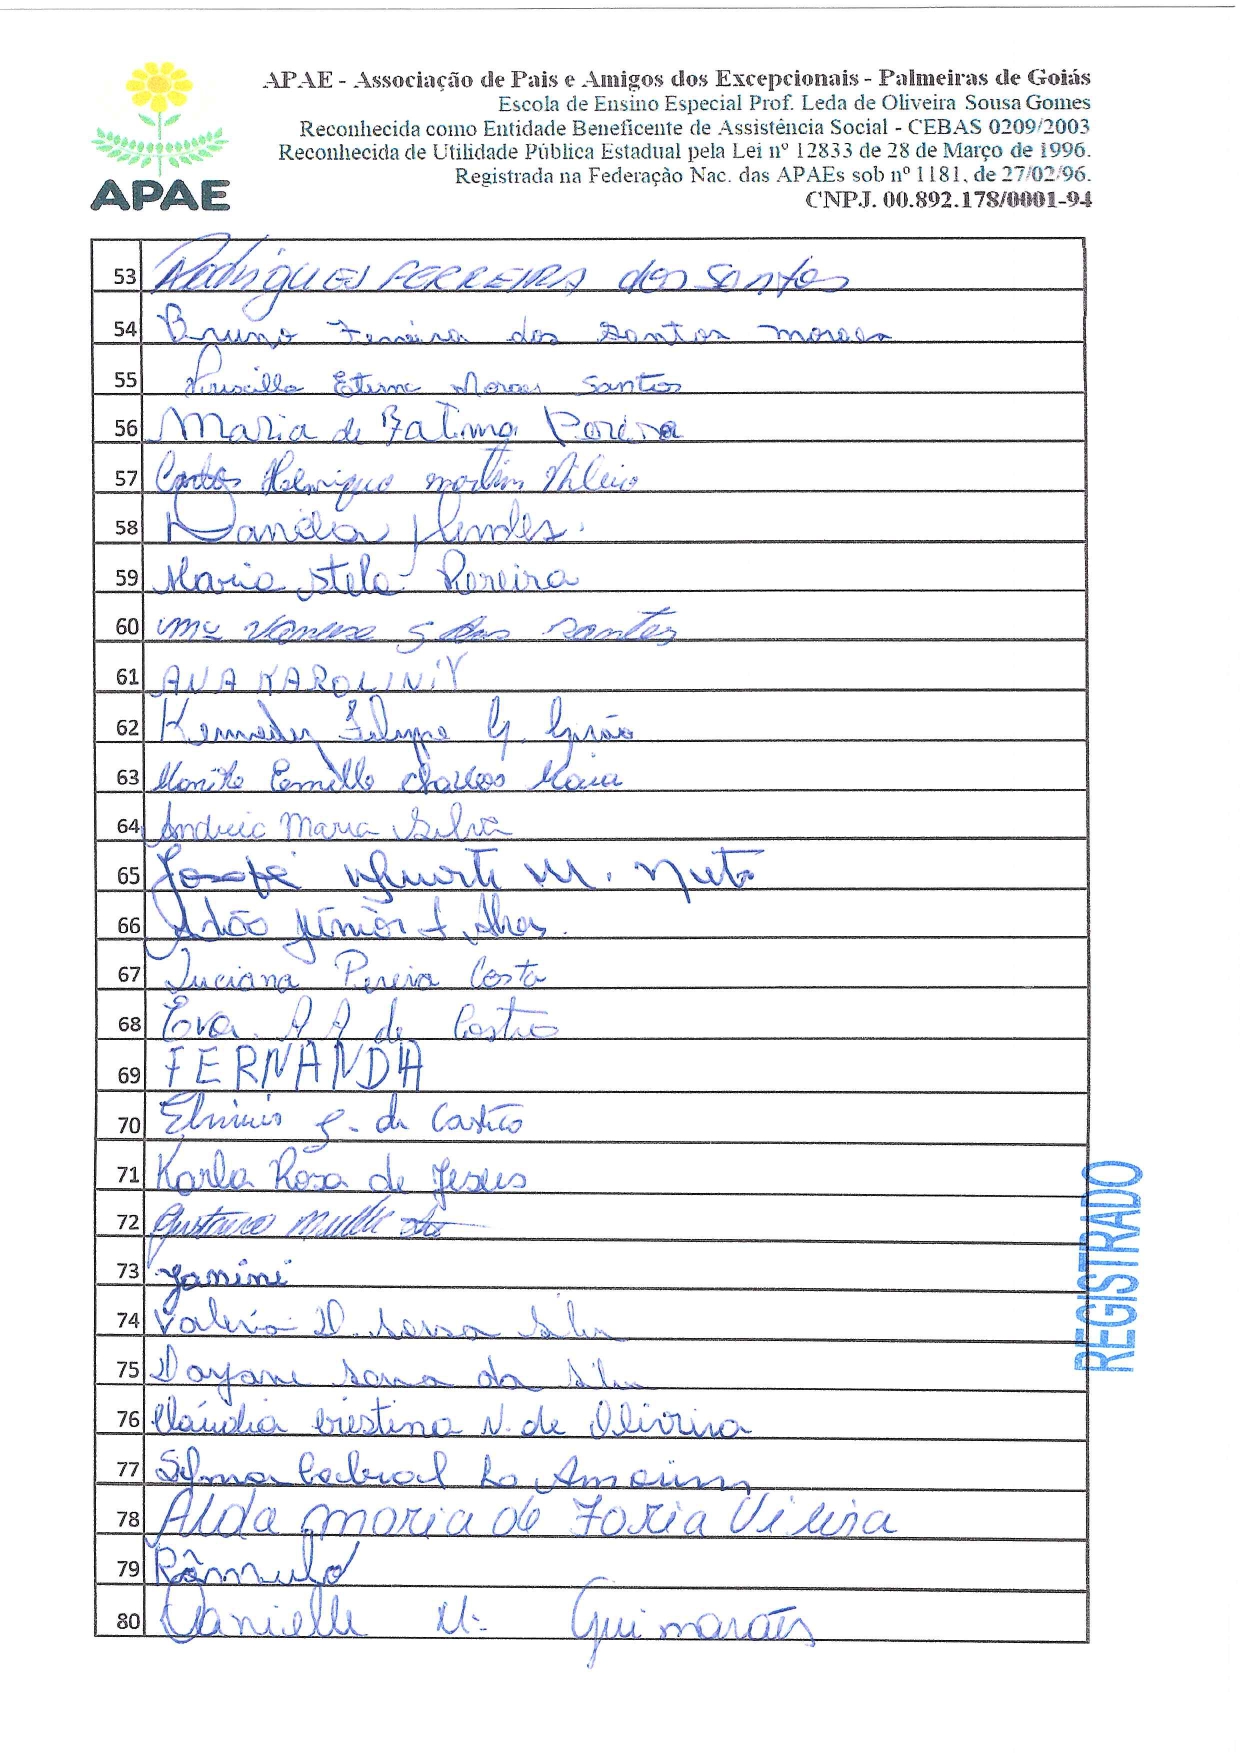 APAE - Associação de Pais e Amigos dos Excepcionais - Palmeiras de Goiás
Escola de Ensino Especial Prof. Leda de Oliveira Sousa Gomes
Reconhecida como Entidade Beneficente de Assistência Social - CEBAS 0209/2003
Reconhecida de Utilidade Pública Estadual pela Lei nº 12833 de 28 de Março de 1996.
Registrada na Federação Nac. das APAEs sob nº 1181, de 27/02/96.
CNPJ. 00.892.178/0001-94
APAE
53 Rodrigues Ferreira dos Santos
54 Bruno Ferreira dos Santos Moraes
55 Priscilla Eterna Moraes Santos
56 Maria de Fatima Pereira
57 Carlos Henrique Martins
58 Mendes.
59 Maria Stela Pereira
60 Santos
61 ANA KAROLINY
62 Kennedy Felype G.
63 Camille Maia
64 Maria Silva
65 M. Neto
66 Adão Júnior
67 Luciana Pereira Costa
68 Eva A A de Castro
69 FERNANDA
70 de Castro
71 Karla Rosa de Jesus
72 Gustavo
73 Yanini
74 Valéria D. Sousa Silva
75 Dayane Sousa da Silva
76 Cláudia Cristina N. de Oliveira
77 Silma Cabral
78 Alda Maria de Faria Vieira
79 Rômulo
80 Danielle M. Guimarães
REGISTRADO